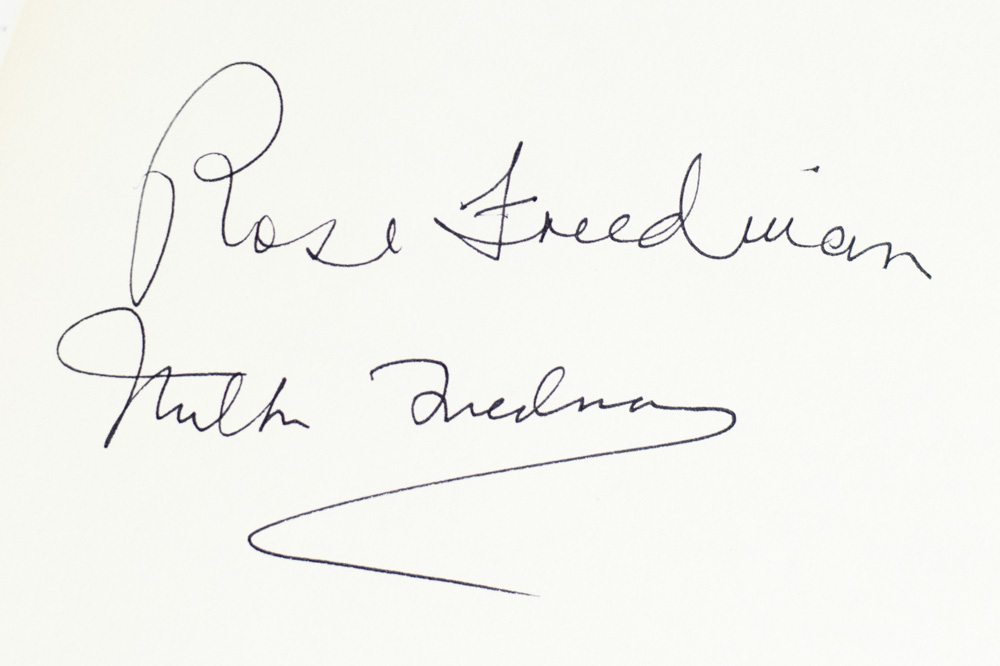 Rose Freedman
Milton Friedman